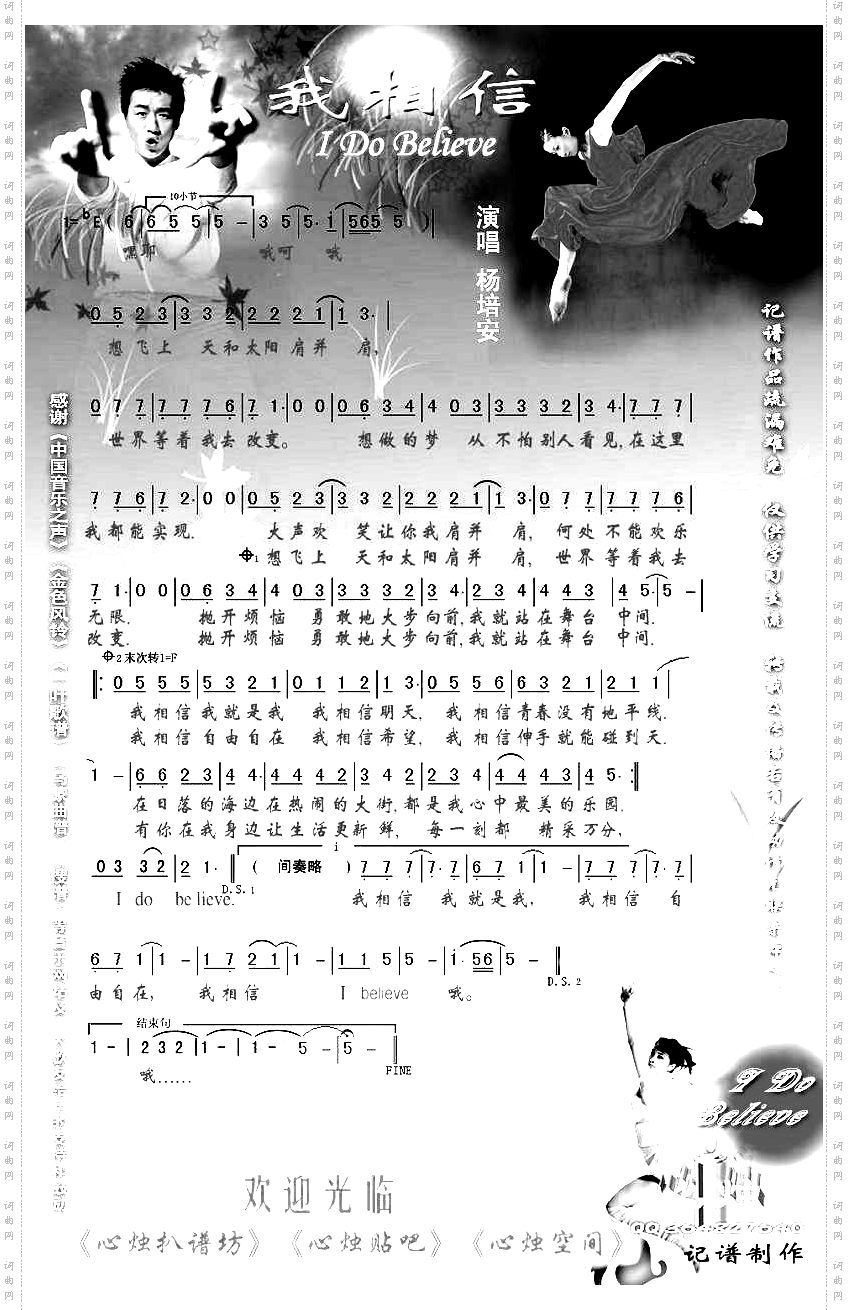 我相信
I Do Believe
演唱 杨培安
10小节
1=bE ( 6 6 5 5 5 - 3 5 5· i 565 5 )
嘿耶 哦呵 哦
0 5 2 3 3 3 3 2 2 2 2 1 1 3·
想飞上 天和太阳肩并 肩,
0 7 7 7 7 7 6 7 1· 0 0 0 6 3 4 4 0 3 3 3 3 2 3 4· 7 7 7
世界等着我去改变。 想做的梦 从不怕别人看见,在这里
7 7 6 7 2· 0 0 0 5 2 3 3 3 3 2 2 2 2 1 1 3· 0 7 7 7 7 7 6
我都能实现. 大声欢 笑让你我肩并 肩, 何处不能欢乐
1 想飞上 天和太阳肩并 肩, 世界等着我去
7 1· 0 0 0 6 3 4 0 4 3 4 3 2 3 4· 2 3 4 4 4 3 4 5· 5 -
无限. 抛开烦恼 勇敢地大步向前,我就站在舞台 中间.
改变. 抛开烦恼 勇敢地大步向前,我就站在舞台 中间.
2 末次转1=F
0 5 5 5 5 5 3 2 1 0 1 1 2 1 3· 0 5 5 6 6 3 2 1 2 1 1
我相信我就是我 我相信明天, 我相信青春没有地平线.
我相信自由自在 我相信希望, 我相信伸手就能碰到天.
1 - 6 6 2 3 4 4· 4 4 4 2 3 4 2 2 3 4 4 3 2 3 4 5·
在日落的海边在热闹的大街.都是我心中最美的乐园.
有你在我身边让生活更新鲜, 每一刻都 精采万分,
0 3 3 2 2 1· ( 间奏略 ) 7 7 7 7· 7 6 7 1 1 - 7 7 7 7· 7
D.S.1
I do believe. 我相信 我就是我, 我相信 自
6 7 1 1 - 1 7 2 1 1 - 1 1 5 5 - i· 56 5 -
D.S.2
由自在, 我相信 I believe 哦。
结束句
1 - 2 3 2 1 - 1 - 5 - 5 -
FINE
哦……
感谢《中国音乐之声》《金色风铃》《一叶歌谱》
记谱作品疏漏难免 仅供学习交流
I Do
Believe
欢迎光临
《心烛扒谱坊》《心烛贴吧》《心烛空间》
记谱制作
词曲网